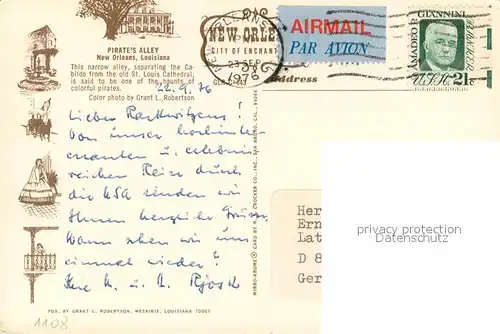 PIRATE'S ALLEY
New Orleans, Louisiana
This narrow alley, separating the Ca-
bildo from the old St. Louis Cathedral,
is said to be one of the haunts of
colorful pirates.
Color photo by Grant L. Robertson
22.9.76
Liebe
Von unser hochinter
essanten u. erlebnis
reichen Reise durch
die USA senden wir
Ihnen herzliche Grüsse.
Wann sehen wir uns
einmal wieder?
Ihre K. u. A.
PUB. BY GRANT L. ROBERTSON, METAIRIE, LOUISIANA 70001
1108
MIRRO-KROME® CARD BY H. S. CROCKER CO., INC., SAN BRUNO, CAL.
NEW ORLE
CITY OF ENCHANT
23 SEP
1976
AIRMAIL
PAR AVION
AMADEO P. GIANNINI
21c
Address
Her
Ern
Lat
D 8
Ger
privacy protection
Datenschutz